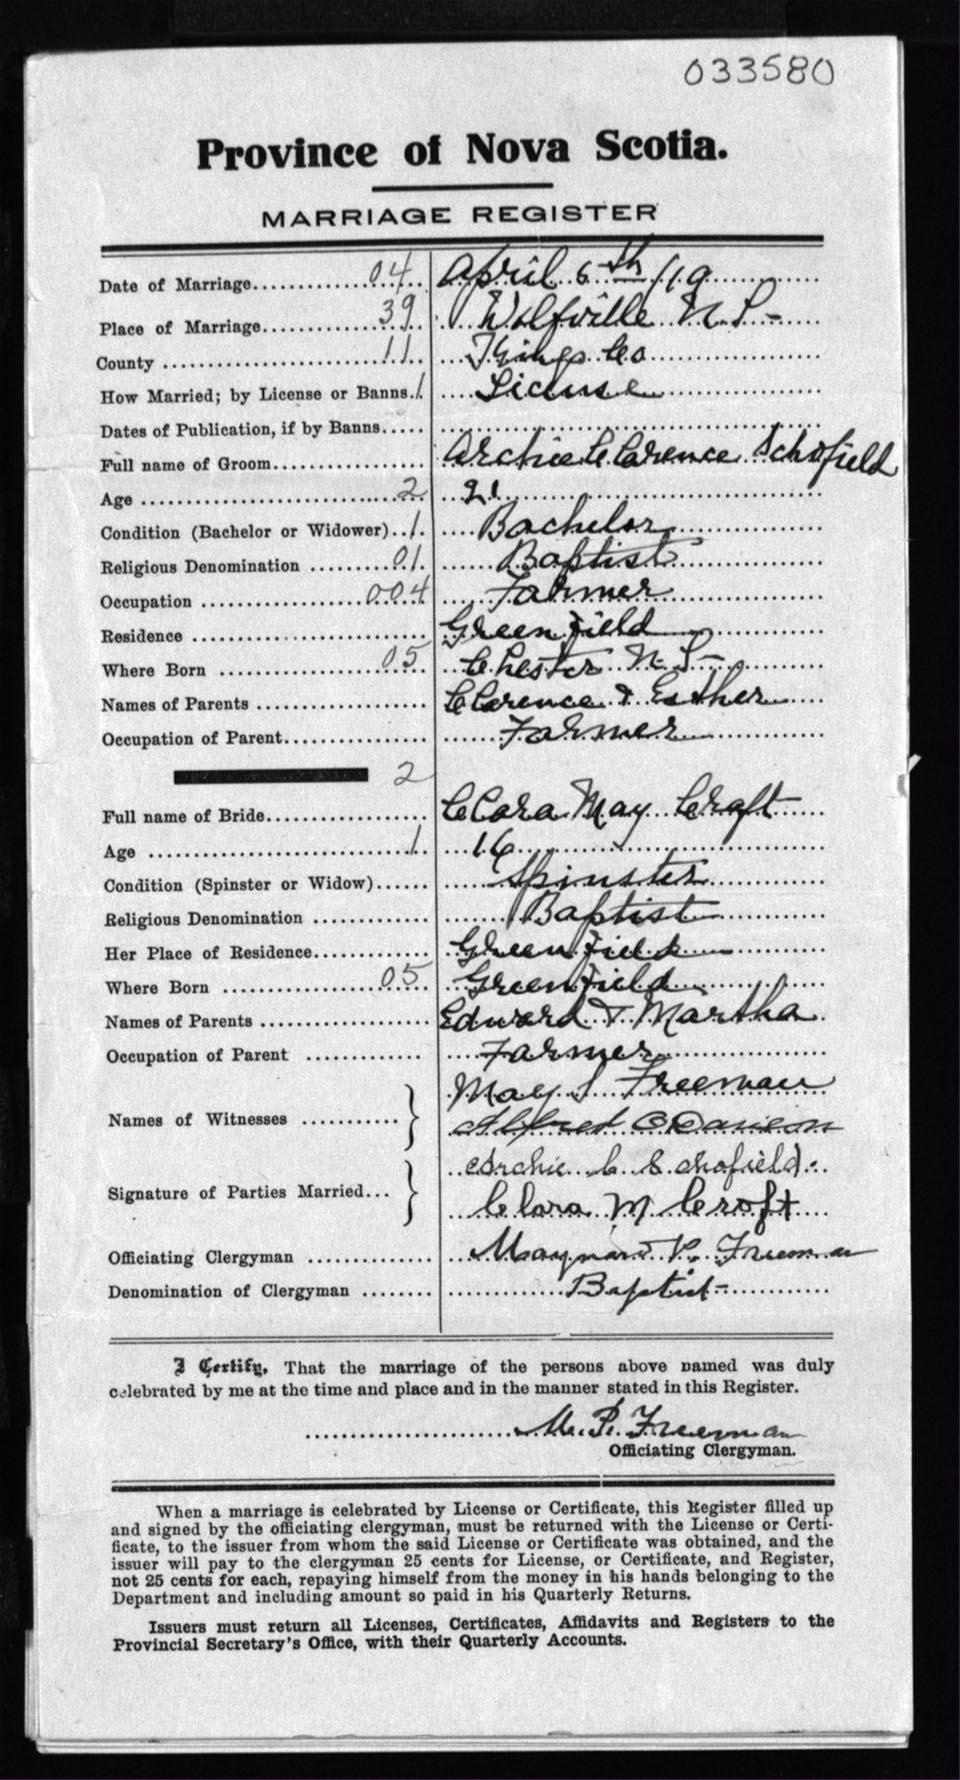 033580
Province of Nova Scotia.
MARRIAGE REGISTER
Date of Marriage 04 April 6th /19
Place of Marriage 39 Wolfville N.S.
County 11 Kings Co
How Married; by License or Banns 1 License
Dates of Publication, if by Banns
Full name of Groom Archie Clarence Schofield
Age 2 21
Condition (Bachelor or Widower) 1 Bachelor
Religious Denomination 01 Baptist
Occupation 004 Farmer
Residence Greenfield
Where Born 05 Chester N.S.
Names of Parents Clarence & Esther
Occupation of Parent Farmer
2
Full name of Bride Clara May Craft
Age 1 16
Condition (Spinster or Widow) Spinster
Religious Denomination Baptist
Her Place of Residence Greenfield
Where Born 05 Greenfield
Names of Parents Edward & Martha
Occupation of Parent Farmer
May S Freeman
Names of Witnesses
Alfred C Davison
Archie C Schofield
Signature of Parties Married
Clara M Croft
Officiating Clergyman Maynard P. Freeman
Denomination of Clergyman Baptist
I Certify, That the marriage of the persons above named was duly
celebrated by me at the time and place and in the manner stated in this Register.
M. P. Freeman
Officiating Clergyman.
When a marriage is celebrated by License or Certificate, this Register filled up
and signed by the officiating clergyman, must be returned with the License or Certi-
ficate, to the issuer from whom the said License or Certificate was obtained, and the
issuer will pay to the clergyman 25 cents for License, or Certificate, and Register,
not 25 cents for each, repaying himself from the money in his hands belonging to the
Department and including amount so paid in his Quarterly Returns.
Issuers must return all Licenses, Certificates, Affidavits and Registers to the
Provincial Secretary's Office, with their Quarterly Accounts.